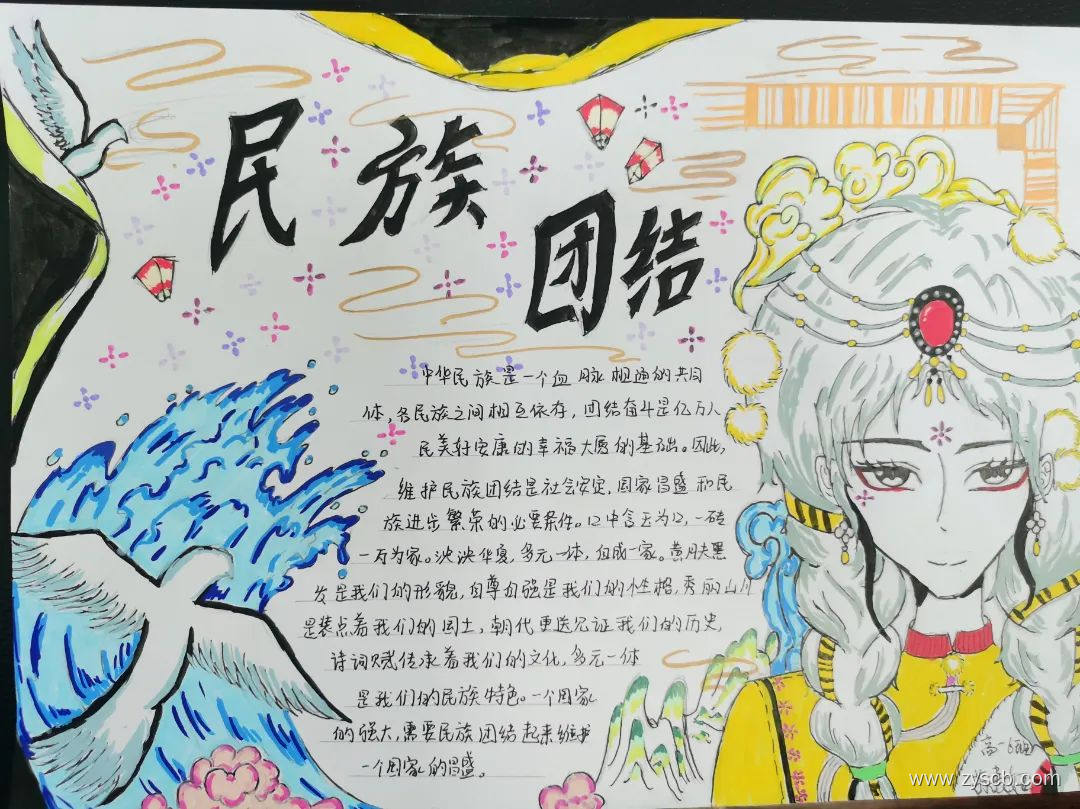 民族
团结
中华民族是一个血脉相通的共同
体,各民族之间相互依存,团结奋斗是亿万人
民美好安康的幸福大厦的基础。因此,
维护民族团结是社会安定,国家昌盛和民
族进步繁荣的必要条件。以中言玉为以,一砖
一瓦为家。泱泱华夏,多元一体,血成一家。黄肤黑
发是我们的形貌,自尊自强是我们的性格,秀丽山川
是装点着我们的国土,朝代更迭见证我们的历史,
诗词赋传承着我们的文化,多元一体
是我们的民族特色。一个国家
的强大,需要民族团结起来维护
一个国家的昌盛。
高一
www.zyscb.com